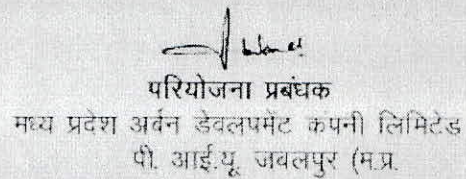 परियोजना प्रबंधक
मध्य प्रदेश अर्बन डेवलपमेंट कंपनी लिमिटेड
पी. आई.यू. जबलपुर (म.प्र.